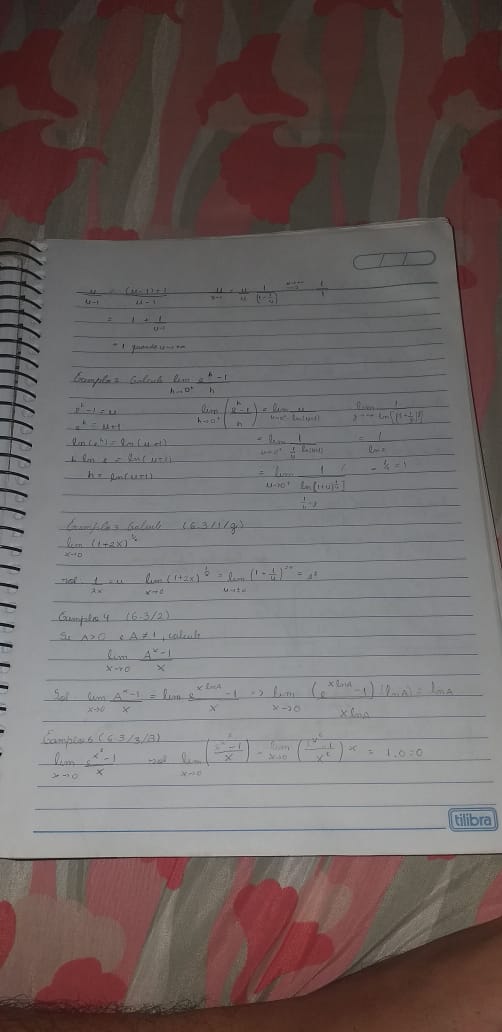 u/(u-1) = ((u-1)+1)/(u-1)
= 1 + 1/(u-1)
= 1 quando
Exemplo 2 Calcule lim h→0⁺ (e^h - 1)/h
e^h - 1 = u
e^h = u+1
ln(e^h) = ln(u+1)
h ln e = ln(u+1)
h = ln(u+1)
lim h→0⁺ ((e^h - 1)/h) = lim u→0⁺ u/ln(u+1)
= lim u→0⁺ 1/((1/u) ln(u+1))
= lim u→0⁺ 1/ln[(1+u)^(1/u)]
= 1/ln e
= 1/1 = 1
Exemplo 3 Calcule (6.3/1/g)
lim x→0 (1+2x)^(1/x)
sol 1/2x = u lim x→0 (1+2x)^(1/x) = lim u→±∞ (1+1/u)^(2u) = e²
Exemplo 4 (6.3/2)
Se A>0 e A≠1, calcule
lim x→0 (A^x - 1)/x
Sol lim x→0 (A^x - 1)/x = lim (e^(x lnA) - 1)/x => lim x→0 ((e^(x lnA) - 1)/(x lnA)) (lnA) = lnA
(6.3/3/3)
lim x→0 (e^(x²) - 1)/x sol lim x→0 ((e^(x²) - 1)/x) = lim x→0 ((e^(x²) - 1)/x²) x = 1.0=0
tilibra